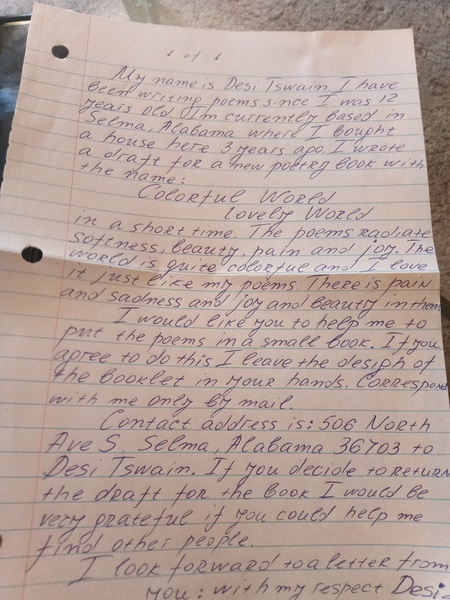 1 of 1
My name is Desi Tswain. I have
been writing poems since I was 12
years old. I'm currently based in
Selma, Alabama where I bought
a house here 3 years ago. I wrote
a draft for a new poetry book with
the name:
Colorful World
Lovely World
in a short time. The poems radiate
softness, beauty, pain and joy. The
world is quite colorful and I love
it just like my poems. There is pain
and sadness and joy and beauty in them
I would like you to help me to
put the poems in a small book. If you
agree to do this I leave the design of
the booklet in your hands. Correspond
with me only by mail.
Contact address is: 506 North
Ave S, Selma, Alabama 36703 to
Desi Tswain. If you decide to return
the draft for the book I would be
very grateful if you could help me
find other people.
I look forward to a letter from
you: with my respect Desi